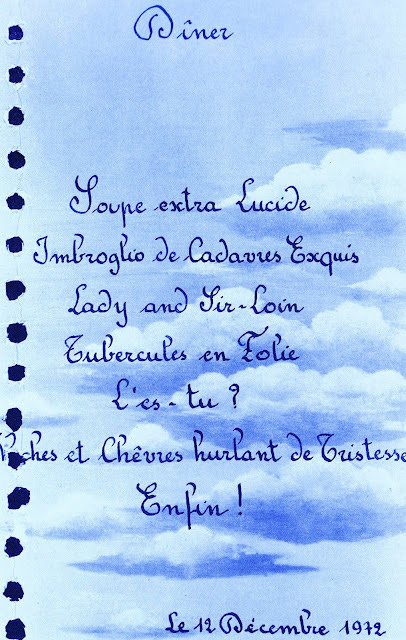 Dîner
Soupe extra Lucide
Imbroglio de Cadavres Exquis
Lady and Sir-Loin
Tubercules en Folie
L'es-tu ?
Vaches et Chêvres hurlant de Tristesse
Enfin !
Le 12 Décembre 1972